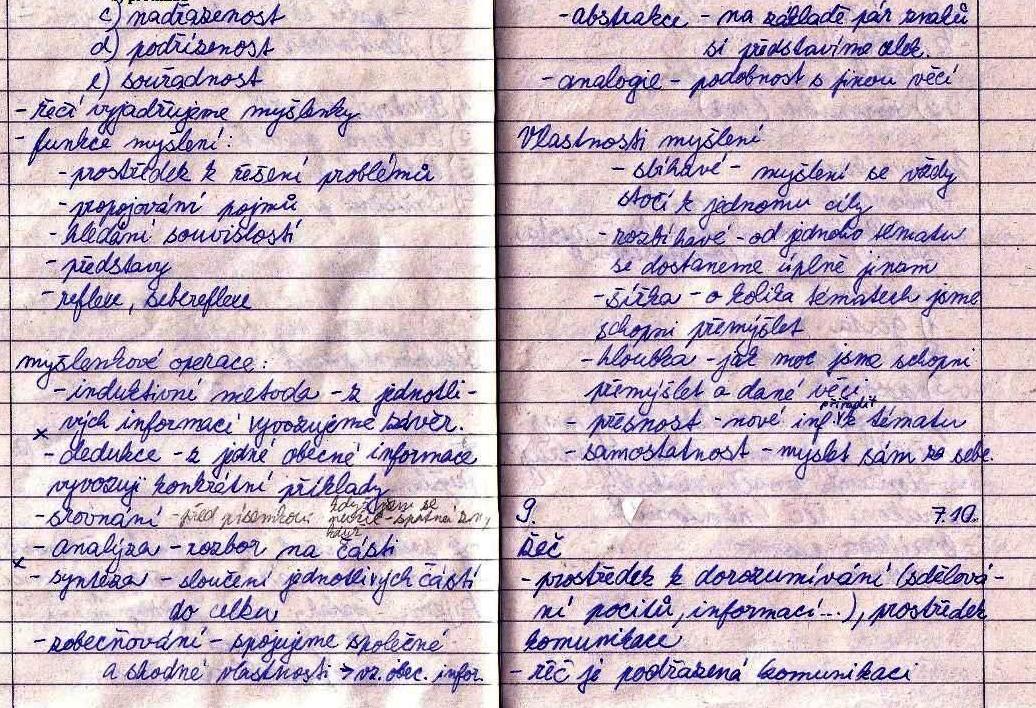 c) nadřazenost
d) podřízenost
e) souřadnost
- řečí vyjadřujeme myšlenky
- funkce myšlení:
- prostředek k řešení problémů
- propojování pojmů
- hledání souvislostí
- představy
- reflexe, sebereflexe
myšlenkové operace:
- induktivní metoda - z jednotli-
vých informací vyvozujeme závěr.
x - dedukce - z jedné obecné informace
vyvozuji konkrétní příklady
- srovnání - před písemkou když jsem se
neučil - špatná zn,
když
- analýza - rozbor na části
x - syntéza - sloučení jednotlivých částí
do celku
- zobecňování - spojujeme společné
a shodné vlastnosti → vz. obec. infor.
- abstrakce - na základě pár znaků
si představíme celek.
- analogie - podobnost s jinou věcí
Vlastnosti myšlení
- sbíhavé - myšlení se vždy
stočí k jednomu cíly
- rozbíhavé - od jednoho tématu
se dostaneme úplně jinam
- šířka - o kolika tématech jsme
schopni přemýšlet
- hloubka - jak moc jsme schopni
přemýšlet o dané věci
přiřadit
- přesnost - nové inf. k tématu
- samostatnost - myslet sám za sebe.
9. 7.10.
Řeč
- prostředek k dorozumívání (sdělová-
ní pocitů, informací...), prostředek
komunikace
- řeč je podřazená komunikaci